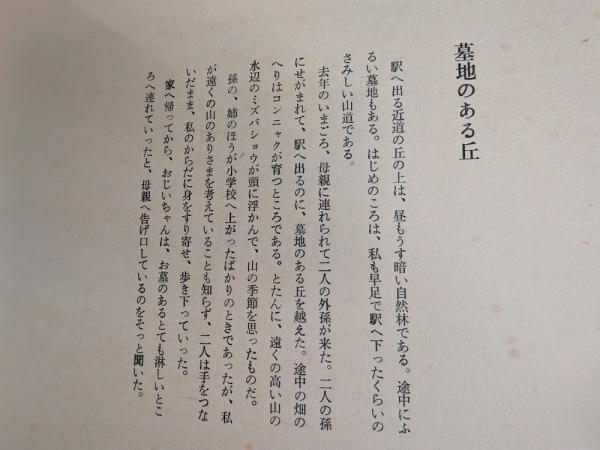 墓地のある丘
駅へ出る近道の丘の上は、昼もうす暗い自然林である。途中にふ
るい墓地もある。はじめのころは、私も早足で駅へ下ったくらいの
さみしい山道である。
去年のいまごろ、母親に連れられて二人の外孫が来た。二人の孫
にせがまれて、駅へ出るのに、墓地のある丘を越えた。途中の畑の
へりはコンニャクが育つところである。とたんに、遠くの高い山の
水辺のミズバショウが頭に浮かんで、山の季節を思ったものだ。
孫の、姉のほうが小学校へ上がったばかりのときであったが、私
が遠くの山のありさまを考えていることも知らず、二人は手をつな
いだまま、私のからだに身をすり寄せ、歩き下っていった。
家へ帰ってから、おじいちゃんは、お墓のあるとても淋しいとこ
ろへ連れていったと、母親へ告げ口しているのをそっと聞いた。